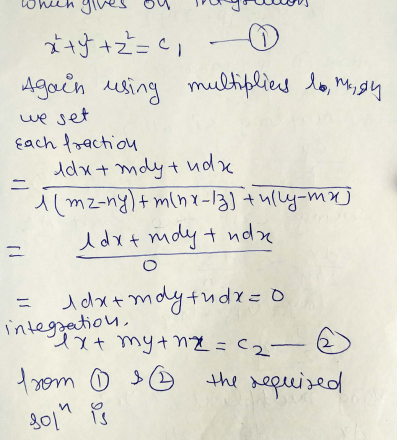 which gives on integration
x²+y²+z² = c₁ — ①
Again using multipliers l, m, n
we set
each fraction
= ldx + mdy + ndx / l(mz-ny)+m(nx-lz)+n(ly-mx)
= ldx + mdy + ndx / 0
= ldx+mdy+ndx = 0
integration,
lx + my + nz = c₂ — ②
from ① & ② the required
solⁿ is